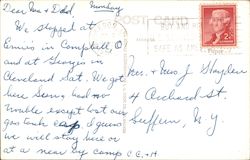 Sunday
Dear Mr + Dad,
We stopped at
Ennis in Campbell, O
and at George's in
Cleveland Sat. We got
here Sun. + had no
trouble except but our
gas tank cap I guess
we will stay here or
at a near by camp C.C.+H.
POST CARD
2¢
Mr. + Mrs J. Hayden
4 Orchard St.
Suffern N.Y.